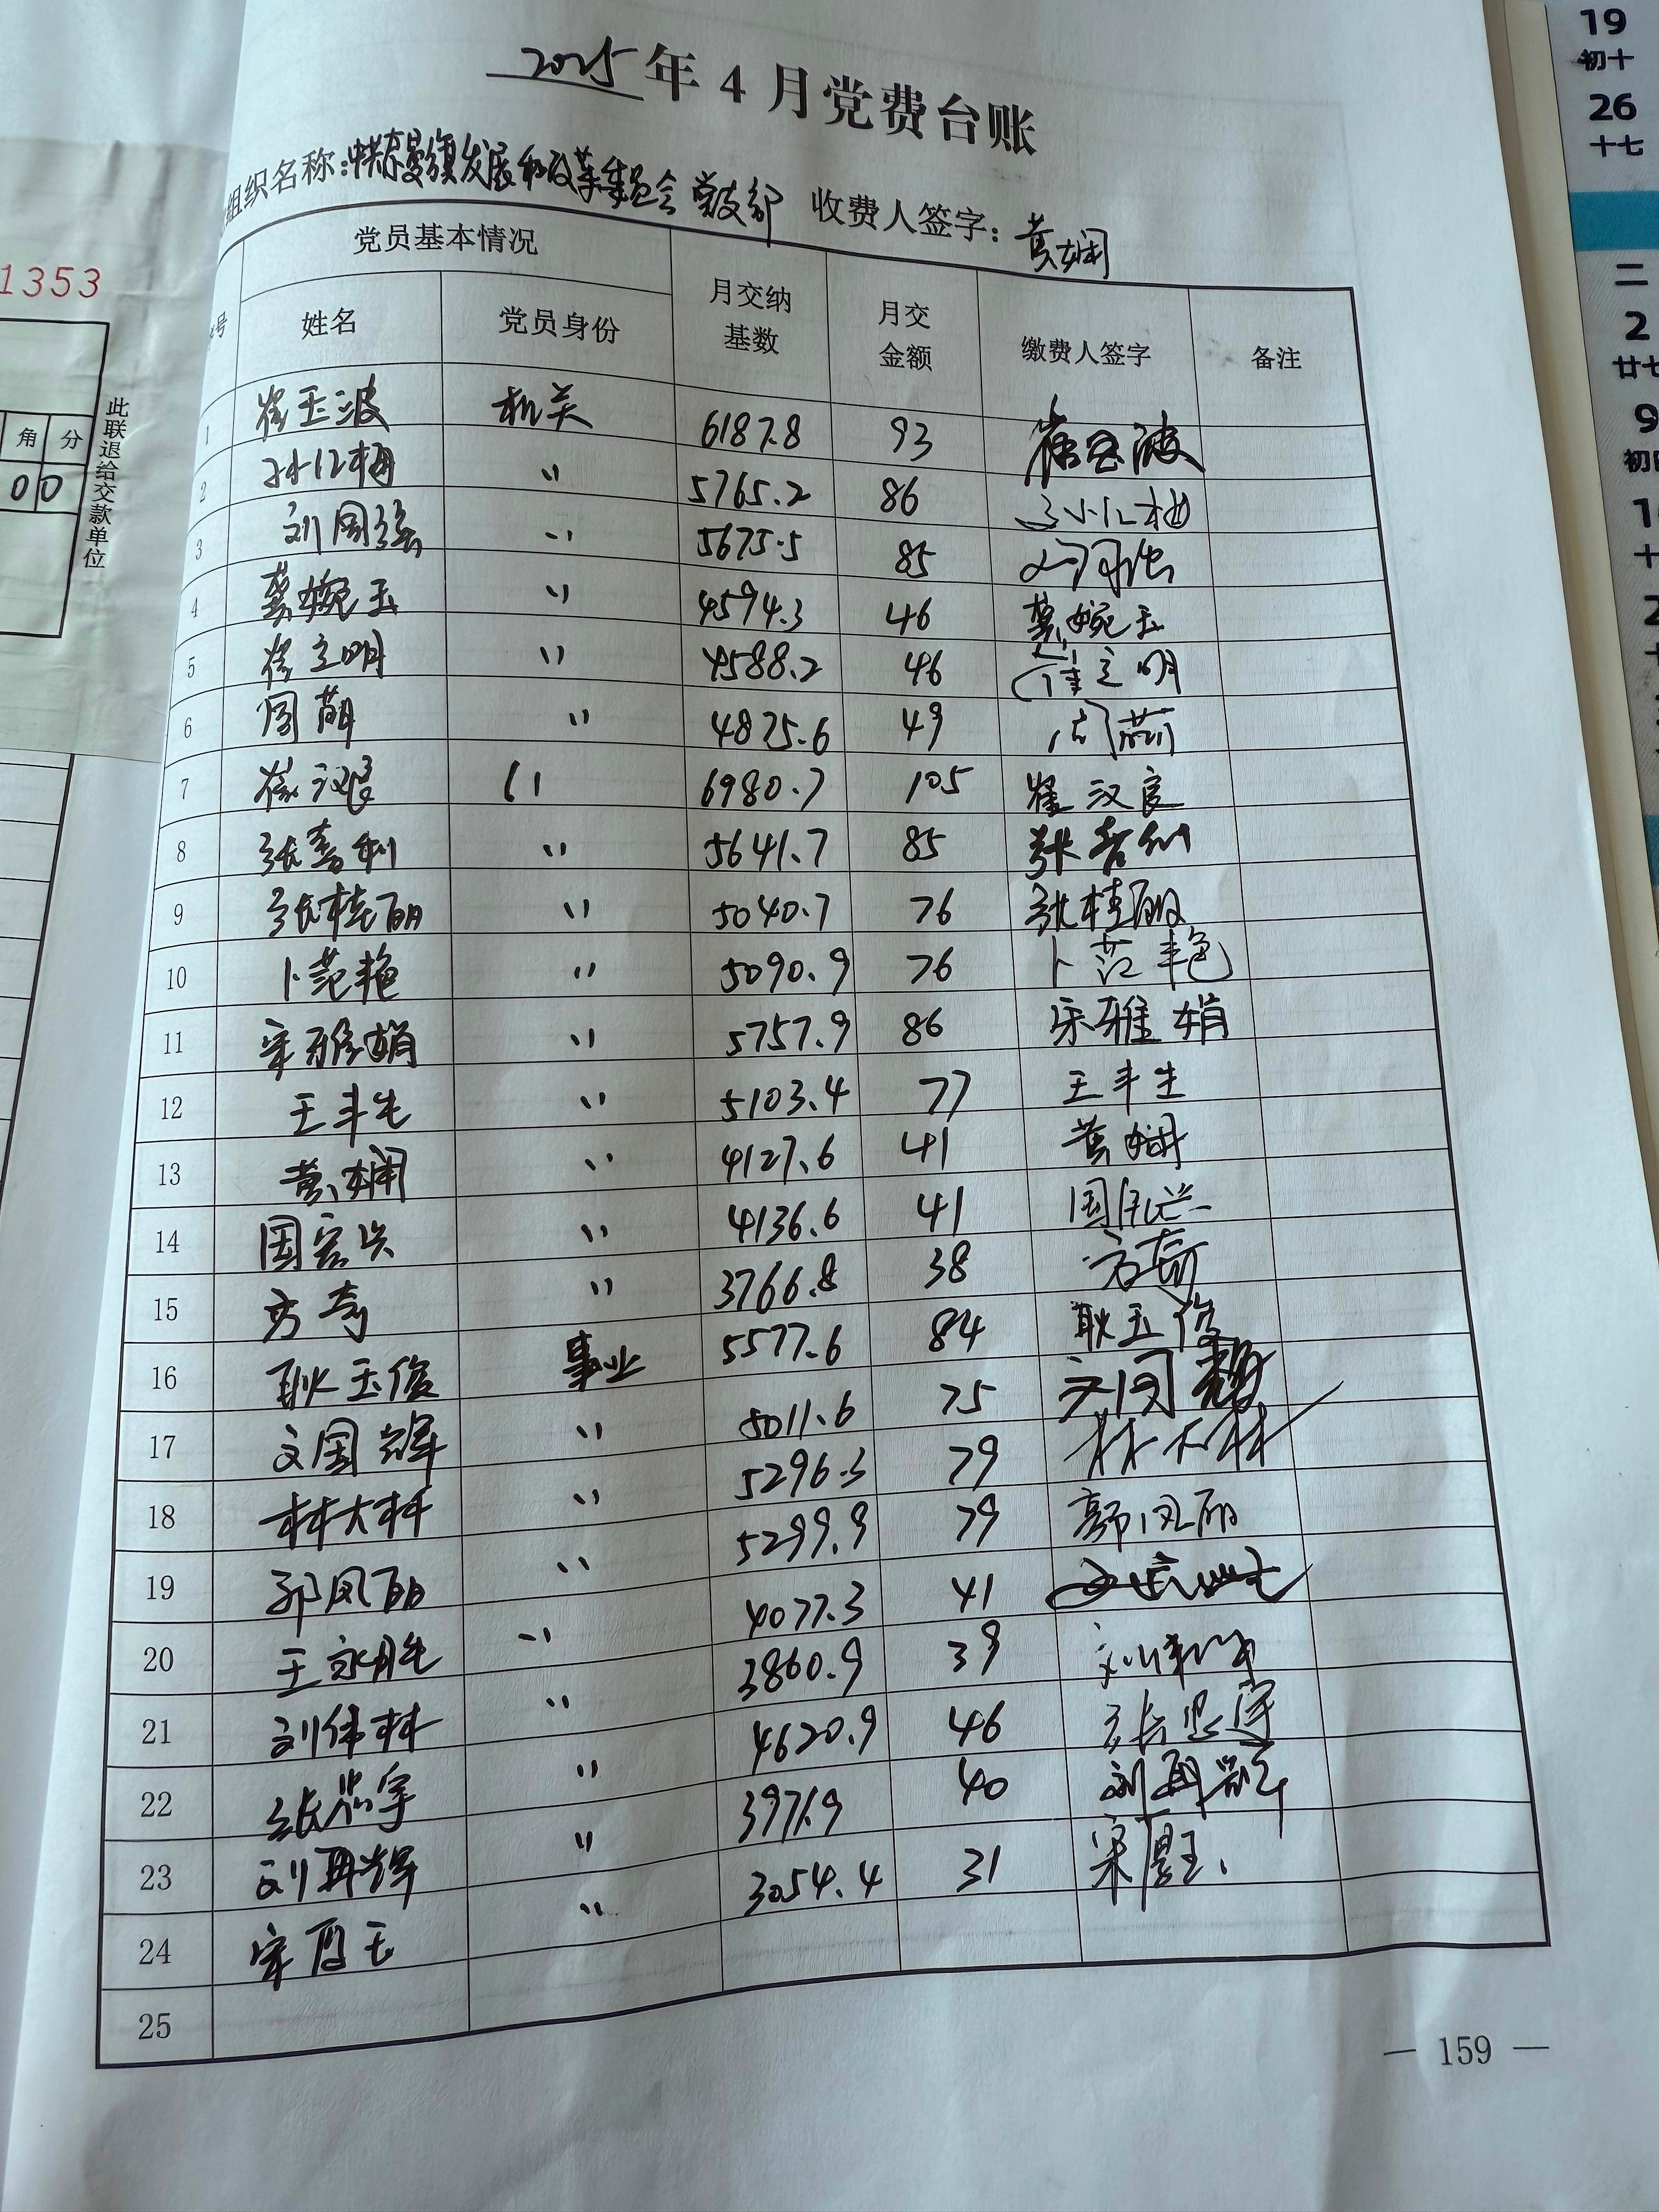 2025年4月党费台账
组织名称:中共奈曼旗发展和改革委员会党支部 收费人签字:黄娴
号 党员基本情况 月交纳基数 月交金额 缴费人签字 备注
姓名 党员身份
1 崔玉波 机关 6187.8 93 崔玉波
2 孙红梅 〃 5765.2 86 孙红梅
3 刘国强 〃 5675.5 85
4 龚婉玉 〃 4594.3 46 龚婉玉
5 崔立明 〃 4588.2 46 崔立明
6 周萌 〃 4875.6 49 周萌
7 崔汉良 〃 6980.7 105 崔汉良
8 张喜利 〃 5641.7 85 张喜利
9 张桂丽 〃 5040.7 76 张桂丽
10 卜范艳 〃 5090.9 76 卜范艳
11 宋雅娟 〃 5757.9 86 宋雅娟
12 王丰生 〃 5103.4 77 王丰生
13 黄娴 〃 4127.6 41 黄娴
14 国宏兴 〃 4136.6 41
15 方奇 〃 3766.8 38 方奇
16 耿玉俊 事业 5577.6 84 耿玉俊
17 文国辉 〃 5011.6 75 文国辉
18 林大林 〃 5296.3 79 林大林
19 郭凤丽 〃 5299.9 79 郭凤丽
20 王永胜 〃 4077.3 41
21 刘伟林 〃 3860.9 39
22 张忠宇 〃 4620.9 46 张忠宇
23 刘再辉 〃 3971.9 40 刘再辉
24 宋 玉 〃 3054.4 31 宋 玉
25
— 159 —
1353
角 分
0 0
此联退给交款单位
19
初十
26
十七
二
2
廿七
9